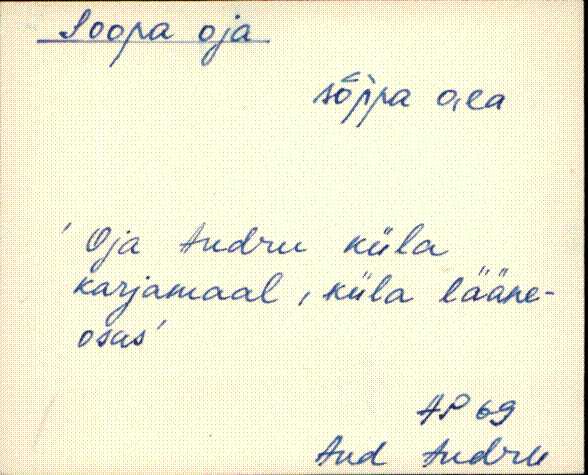 Soopa oja
sȯ́p̀pa o̬i̯a
'Oja Andru küla
karjamaal, küla lääne-
osas'
AP 69
Aud Andru